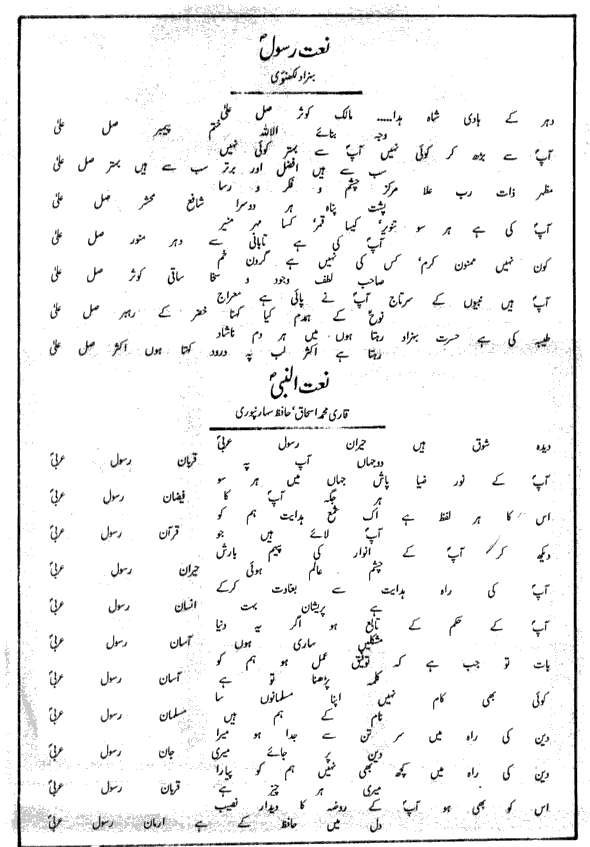 نعت رسولؐ
بہزاد لکھنوی
دہر کے ہادی شاہ ہدا..... مالک کوثر صل علیٰ
وجہ بنائے الااللہ ختم پیمبر صل علیٰ
آپؐ سے بڑھ کر کوئی نہیں آپؐ سے بہتر کوئی نہیں
سب سے ہیں افضل اور برتر سب سے ہیں بہتر صل علیٰ
مظہر ذات رب علا مرکز چشم و فکر و رسا
پشت پناہ ہر دوسرا شافع محشر صل علیٰ
آپؐ کی ہے ہر سو تنویر، کیسا قمر، کسا مہر منیر
آپؐ کی ہے تابانی سے دہر منور صل علیٰ
کون نہیں ممنون کرم، کس کی نہیں ہے گردن خم
صاحب لطف وجود و سخا ساقی کوثر صل علیٰ
آپؐ ہیں نبیوں کے سرتاج آپؐ نے پائی ہے معراج
نوحؑ کے ہمدم کیا کہنا خضر کے رہبر صل علیٰ
طیبہ کی ہے حسرت بہزاد رہتا ہوں میں ہر دم ناشاد
رہتا ہے اکثر لب پہ درود کہتا ہوں اکثر صل علیٰ
نعت النبیؐ
قاری محمد اسحاق، حافظ سہارنپوری
دیدہ شوق ہیں حیران رسول عربیؐ
دوجہاں آپ پہ قربان رسول عربیؐ
آپؐ کے نور ضیا پاش جہاں میں ہر سو
ہر جگہ آپؐ کا فیضان رسول عربیؐ
اس کا ہر لفظ ہے اک شمع ہدایت ہم کو
آپؐ لائے ہیں جو قرآن رسول عربیؐ
دیکھ کر آپؐ کے انوار کی پیہم بارش
چشم عالم ہوئی حیران رسول عربیؐ
آپؐ کی راہ ہدایت سے بغاوت کرکے
ہے پریشان بہت انسان رسول عربیؐ
آپؐ کے حکم کے تابع ہو اگر یہ دنیا
مشکلیں ساری ہوں آسان رسول عربیؐ
بات تو جب ہے کہ توفیق عمل ہو ہم کو
کلمہ پڑھنا تو ہے آسان رسول عربیؐ
کوئی بھی کام نہیں اپنا مسلمانوں سا
نام کے ہم ہیں مسلمان رسول عربیؐ
دین کی راہ میں سر تن سے جدا ہو میرا
دین پر جائے میری جان رسول عربیؐ
دین کی راہ میں کچھ بھی نہیں ہم کو پیارا
میری ہر چیز ہے قربان رسول عربیؐ
اس کو بھی ہو آپؐ کے روضہ کا دیدار نصیب
دل میں حافظ کے ہے ارمان رسول عربیؐ